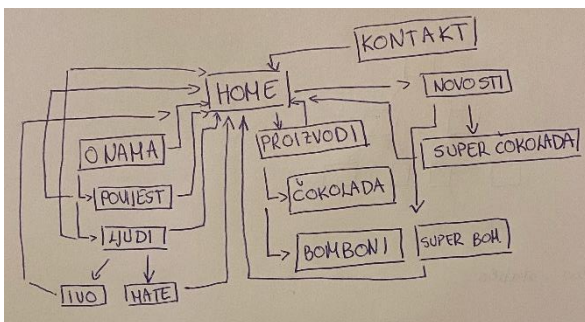 KONTAKT
HOME
NOVOSTI
O NAMA
PROIZVODI
SUPER ČOKOLADA
POVIJEST
ČOKOLADA
LJUDI
BOMBONI
SUPER BOM.
IVO
MATE